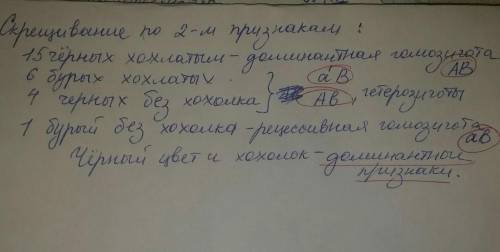 Скрещивание по 2-м признакам:
15 чёрных хохлатым - доминантная гомозигота
АВ
6 бурых хохлатых } аВ
4 черных без хохолка } АВ, гетерозиготы
1 бурый без хохолка - рецессивная гомозигота
аВ
Чёрный цвет и хохолок - доминантной
признаки.